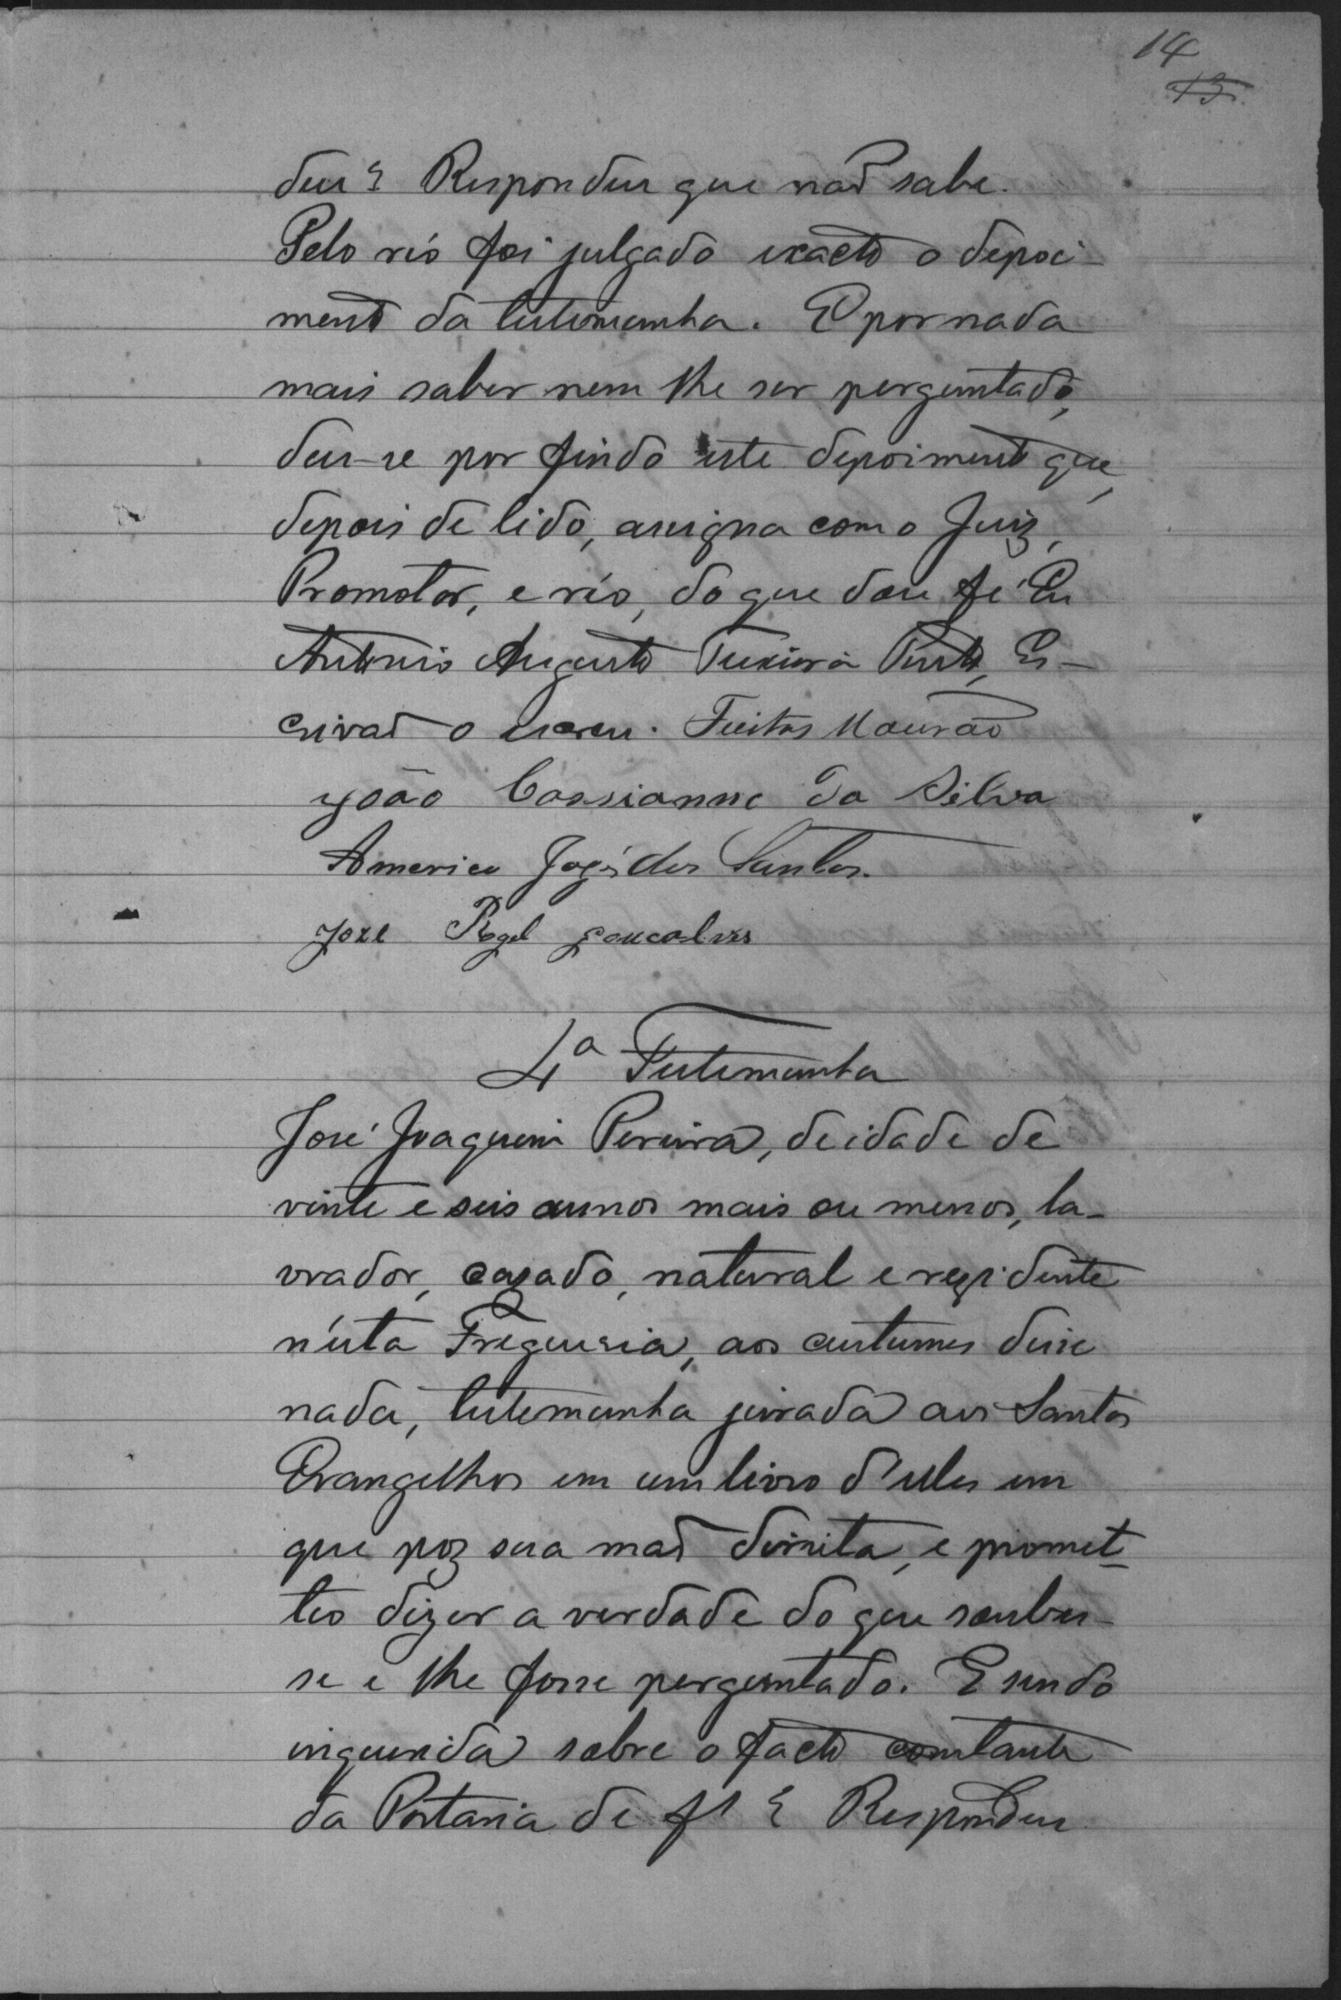 14
13
deu? Respondeu que não sabe.
Pelo réo foi julgado exacto o depoi-
mento da testemunha. E por nada
mais saber nem lhe ser perguntado,
deu-se por findo este depoimento que,
depois de lido, assigna com o Juiz,
Promotor, e réo, do que dou fé. Eu
Antonio Augusto Teixeira Pinto, Es-
crivão o escrevi. Freitas Mourão
João Cassianno da Silva
Americo José dos Santos.
Joze Rogel goncalves
4ª Testemunha
José Joaquim Pereira, de idade de
vinte e seis annos mais ou menos, la-
vrador, cazado, natural e rezidente
n'esta Freguesia, aos custumes disse
nada, testemunha jurada aos Santos
Evangelhos em um livro d'elles em
que poz sua mão direita, e promet-
teo dizer a verdade do que soubes-
se e lhe fosse perguntado. E sendo
inquerida sobre o facto constante
da Portaria de fl ? Respondeu